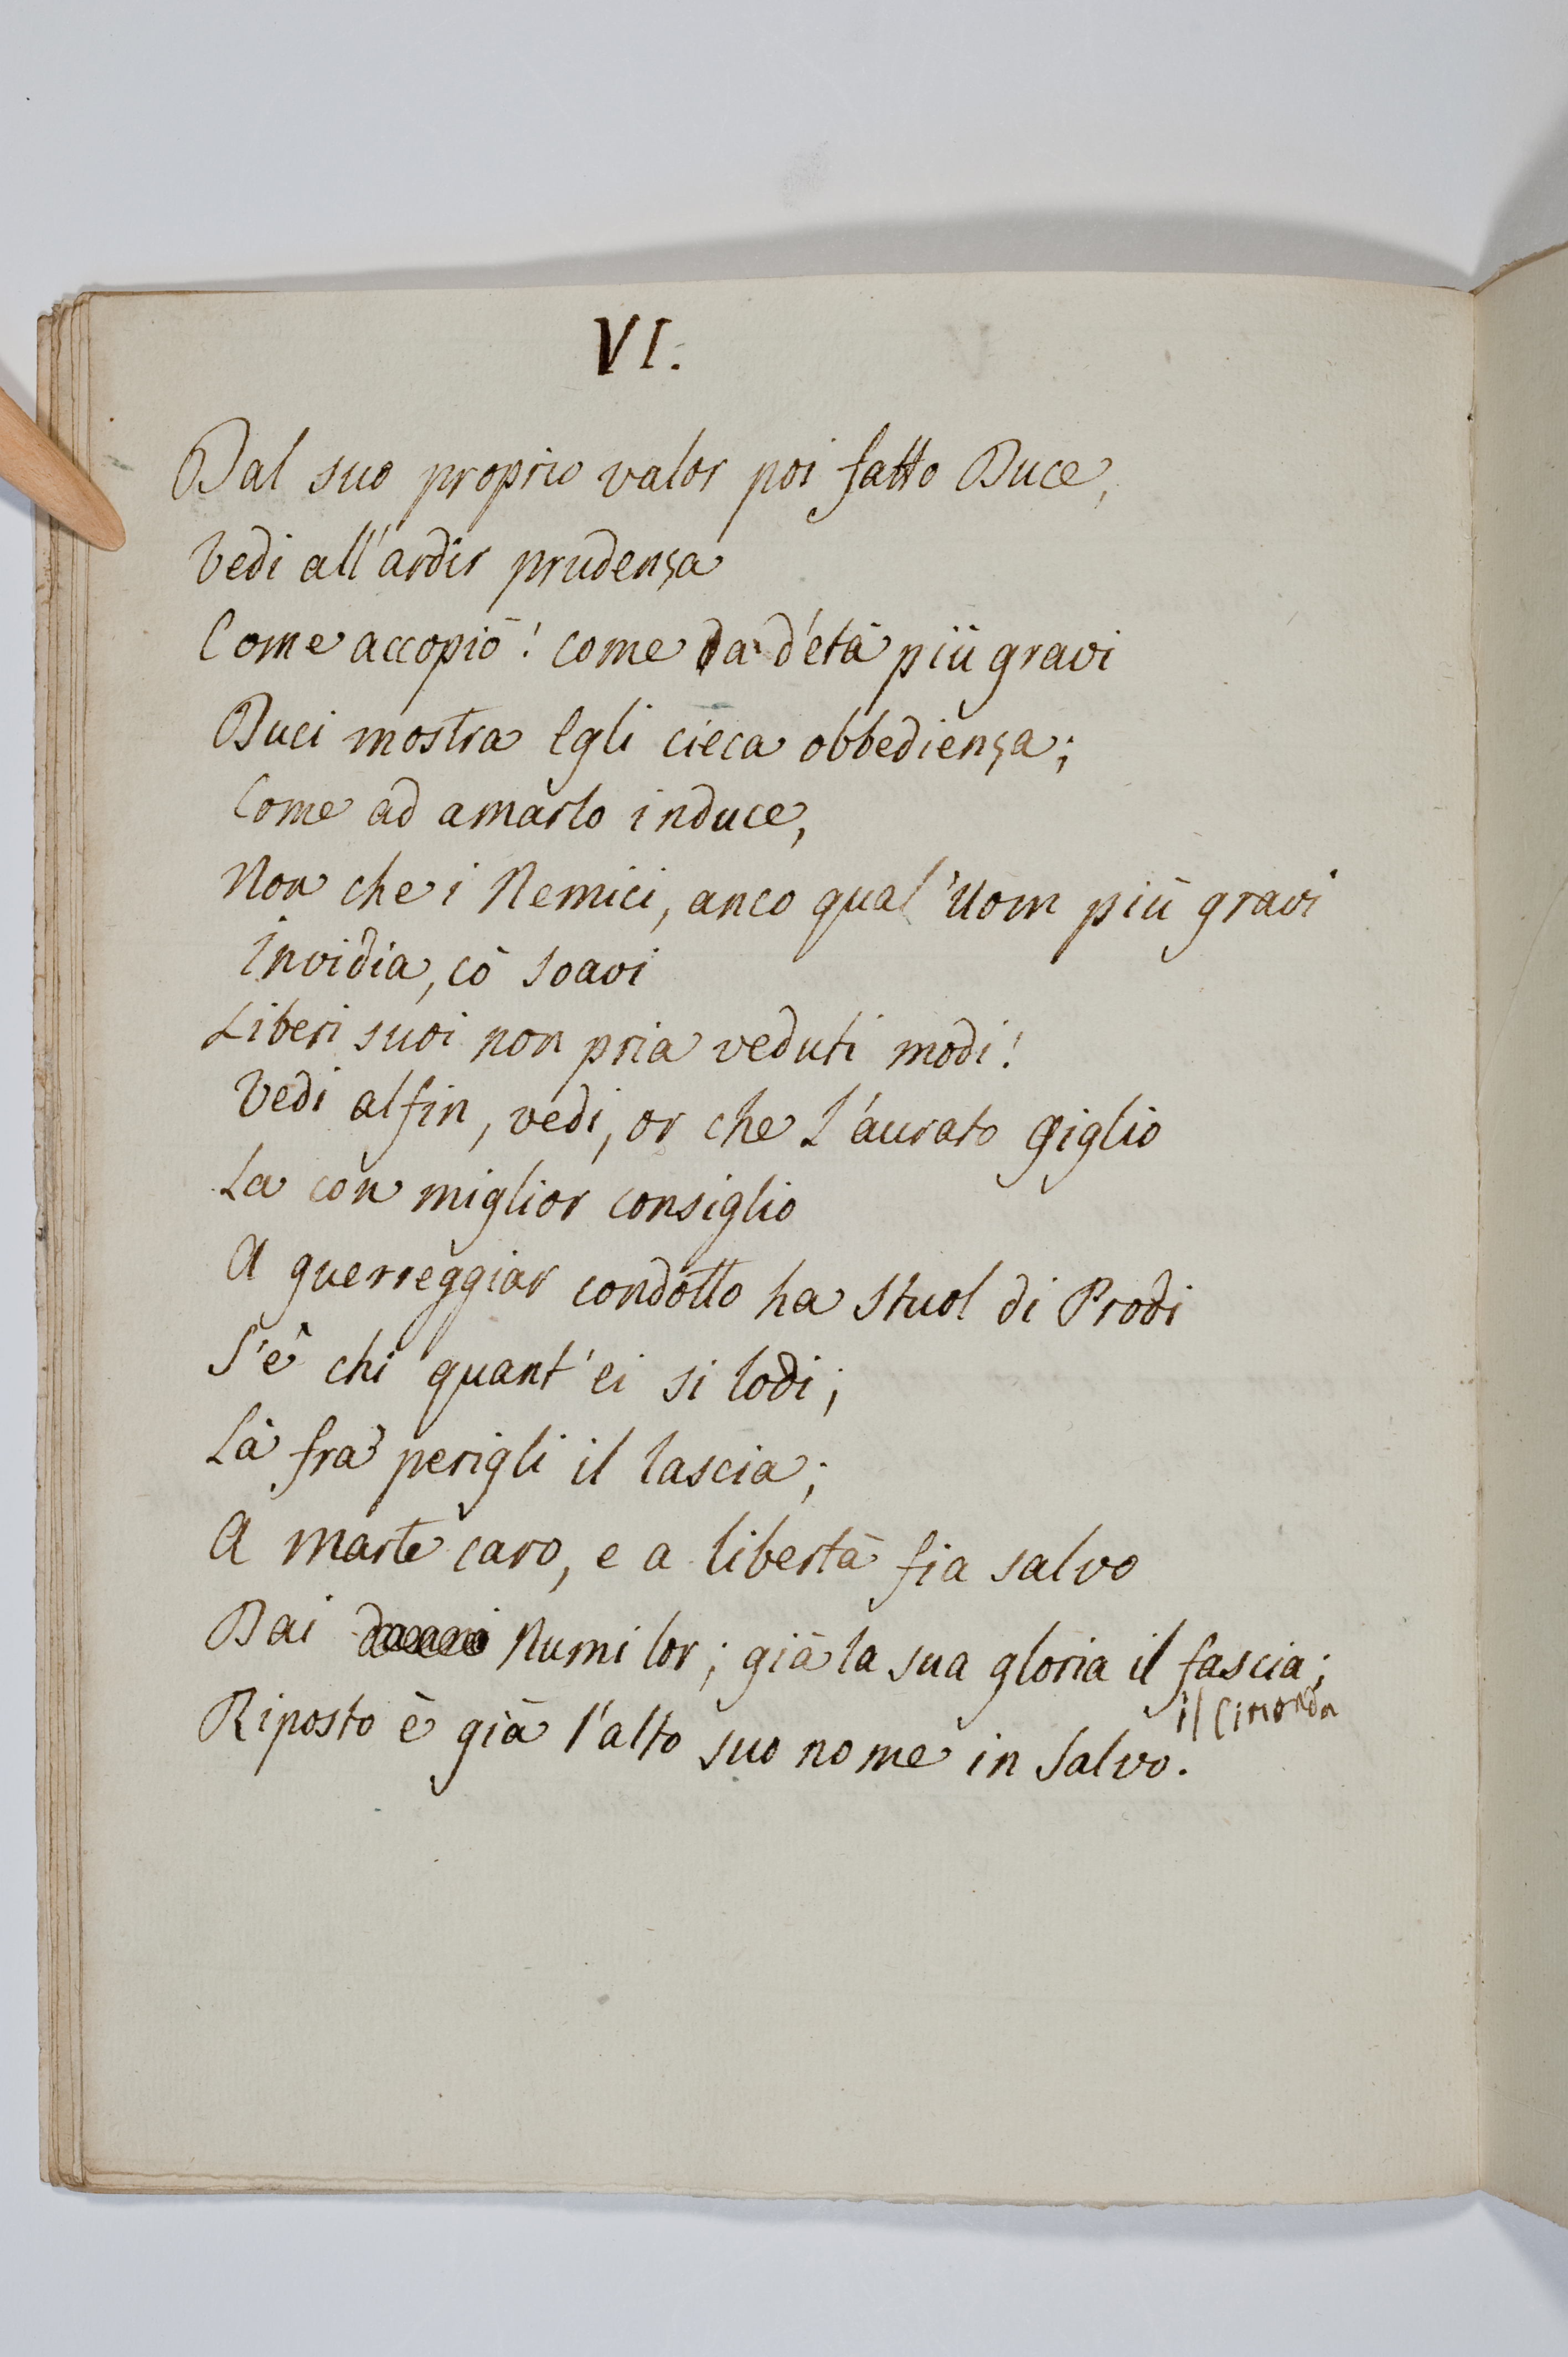 VI.
Dal suo proprio valor poi fatto Duce,
Vedi all'ardir prudenza
Come accopiò! come da d'età più gravi
Duci mostra Egli cieca obbedienza;
Come ad amarlo induce,
Non che i Nemici, anco qual'Uom più gravi
Invidia, cò soavi
Liberi suoi non pria veduti modi!
Vedi alfin, vedi, or che l'aurato giglio
La con miglior consiglio
A guerreggiar condotto ha stuol di Prodi
S'è chi quant'ei si lodi;
Là fra' perigli il lascia;
A Marte caro, e a libertà fia salvo
Dai Numi lor; già la sua gloria il fascia;
il Circonda
Riposto è già l'alto suo nome in salvo.